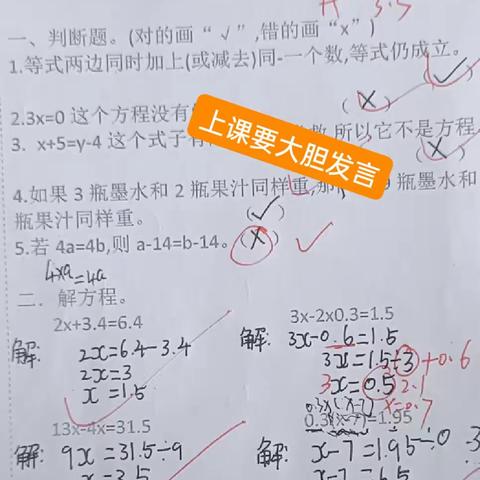 一、判断题。(对的画“√”,错的画“x”)
1.等式两边同时加上(或减去)同-一个数,等式仍成立。
(√)
2.3x=0 这个方程没有
(X)
3. x+5=y-4 这个式子有 数,所以它不是方程
(X)
上课要大胆发言
4.如果 3 瓶墨水和 2 瓶果汁同样重,那 9 瓶墨水和
瓶果汁同样重。
(√)
5.若 4a=4b,则 a-14=b-14。 (X)
4xa=4a
二．解方程。
2x+3.4=6.4
解: 2x=6.4-3.4
2x=3
x=1.5
3x-2x0.3=1.5
解: 3x-0.6=1.5
3x=1.5÷3 +0.6
3x=0.5 2.1
x=0.7
13x-4x=31.5
解: 9x=31.5÷9
x=3.5
0.3(x-7)=1.95
解: x-7=1.95÷0
x-7=6.5